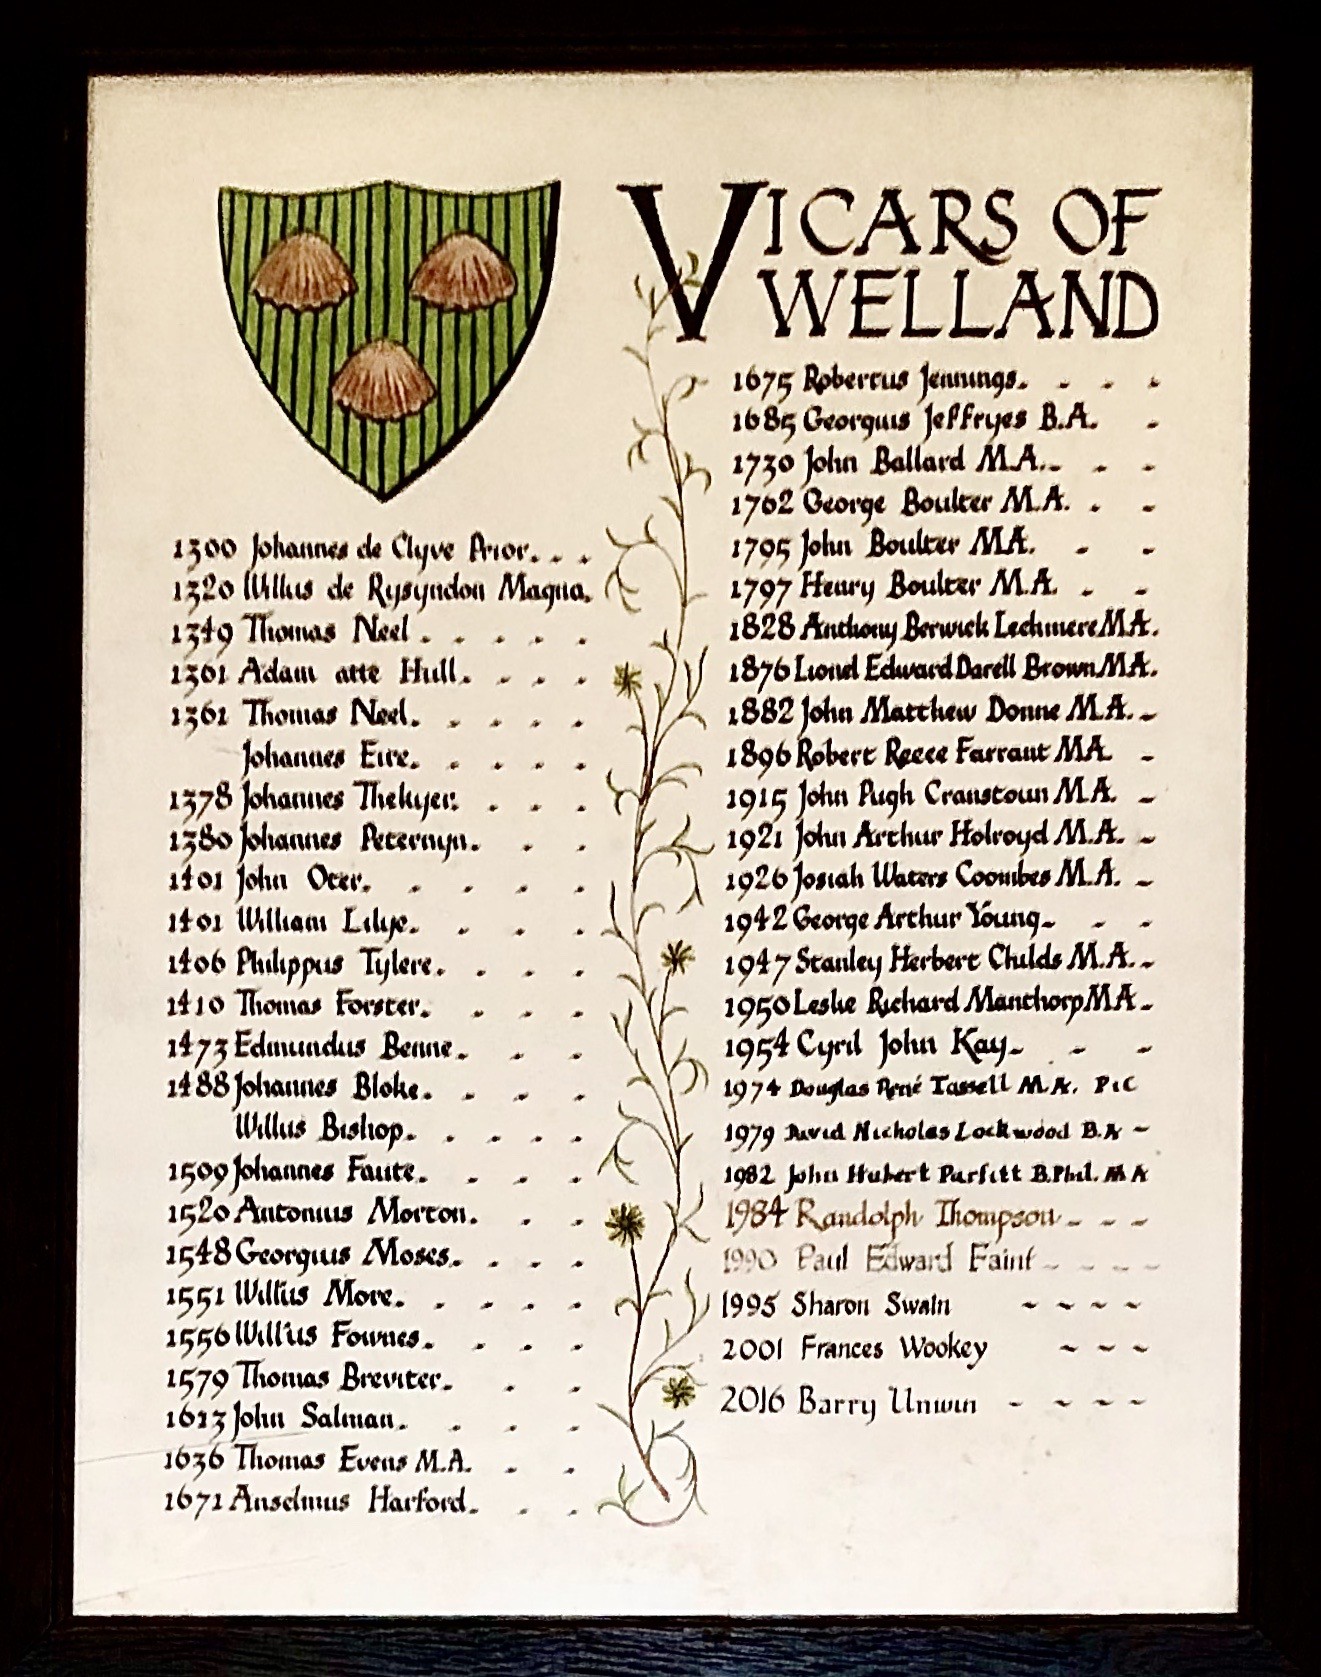 VICARS OF
WELLAND
1300 Johannes de Clyve Prior. . .
1320 Willus de Rysyndon Magna.
1349 Thomas Neel . . . . .
1361 Adam atte Hull. . . .
1361 Thomas Neel. . . . .
Johannes Eire. . . . .
1378 Johannes Thekyer. . . .
1380 Johannes Petermyn. . .
1401 John Oter. . . . .
1401 William Lilye. . . .
1406 Philippus Tylere. . . .
1410 Thomas Forster. . . .
1473 Edmundus Benne. . . .
1488 Johannes Bloke. . . .
Willus Bishop. . . . .
1509 Johannes Faute. . . .
1520 Antonius Morton. . .
1548 Georgius Moses. . . .
1551 Willius More. . . . .
1556 Will'us Fownes. . . .
1579 Thomas Breviter. . .
1613 John Salman. . . .
1636 Thomas Evens M.A. . .
1671 Anselmus Harford. . .
1675 Robertus Jennings. . . .
1685 Georgius Jeffryes B.A. .
1730 John Ballard M.A. . .
1762 George Boulter M.A. . .
1795 John Boulter M.A. . .
1797 Henry Boulter M.A. . .
1828 Anthony Berwick Lechmere M.A.
1876 Lionel Edward Darell Brown M.A.
1882 John Matthew Donne M.A. -
1896 Robert Reece Farrant M.A -
1915 John Pugh Cranstoun M.A. -
1921 John Arthur Holroyd M.A. -
1926 Josiah Waters Coombes M.A. -
1942 George Arthur Young. . .
1947 Stanley Herbert Childs M.A. -
1950 Leslie Richard Manthorp M.A -
1954 Cyril John Kay. . . -
1974 Douglas René Tassell M.A. P i C
1979 David Nicholas Lockwood B.A -
1982 John Hubert Parfitt B.Phil. M A
1984 Randolph Thompson - - -
1990 Paul Edward Faint - - - -
1995 Sharon Swain - - - -
2001 Frances Wookey - - -
2016 Barry Unwin - - - -